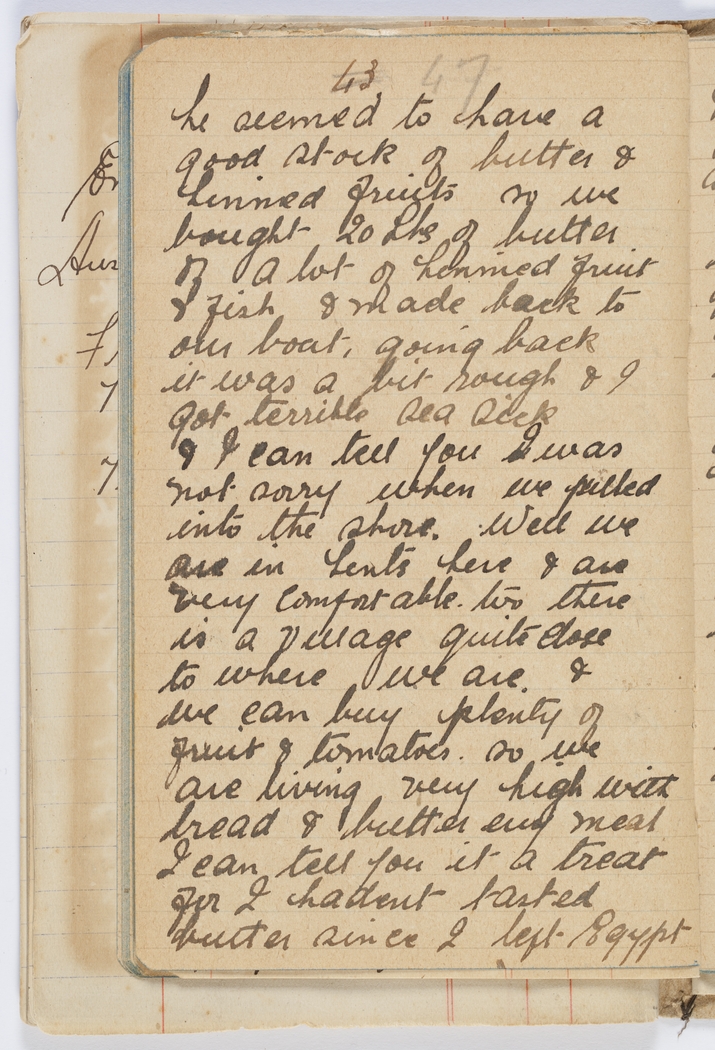 43 47
he seemed to have a
good stock of butter &
tinned fruits so we
bought 20 Lbs of butter
& a lot of tinned fruit
& fish & made back to
our boat, going back
it was a bit rough & I
got terrible sea sick
& I can tell you I was
not sorry when we pulled
into the shore. Well we
are in tents here & are
very comfortable. too there
is a village quite close
to where we are. &
we can buy plenty of
fruit & tomatoes. so we
are living very high with
bread & butter evry meal
I can tell you it a treat
for I hadent tasted
butter since I left Egypt